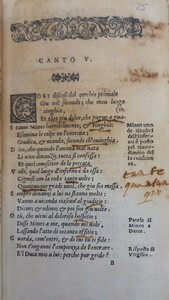 25
CANTO V.
COSI discesi del cerchio primaio
Giu nel secondo; che men luogo
cinghia,
Et tanto piu dolor, che pugne a guaio.
Stauui Minos horribilmente, & ringhia:
Essamina le colpe ne l'entrata;
Giudica, & manda, secondo ch'auinghia.
Dico, che quando l'anima mal nata
Li uien dinanzi; tutta si confessa:
Et quel
de le peccata
Vede, qual luogo d'inferno è da essa:
Cignesi con la coda tante uolte;
Quantunque gradi uuol, che giu sia messa.
Sempre dinanzi a lui ne stanno molte:
Vanno a uicenda ciascuna al giudicio:
Dicono, & odono; & poi son giu uolte.
O tu, che uieni al doloroso hospitio,
Disse Minos a me, quando mi uide,
Lassando l'atto di
Guarda, com'entri, & di cui tu ti fide:
Non t'inganni l'ampiezza de l'entrare.
E'l Duca mio a lui: perche pur gride?
Minos
Parole di
Minos a
Dante.
Risposta di
Virgilio.
B